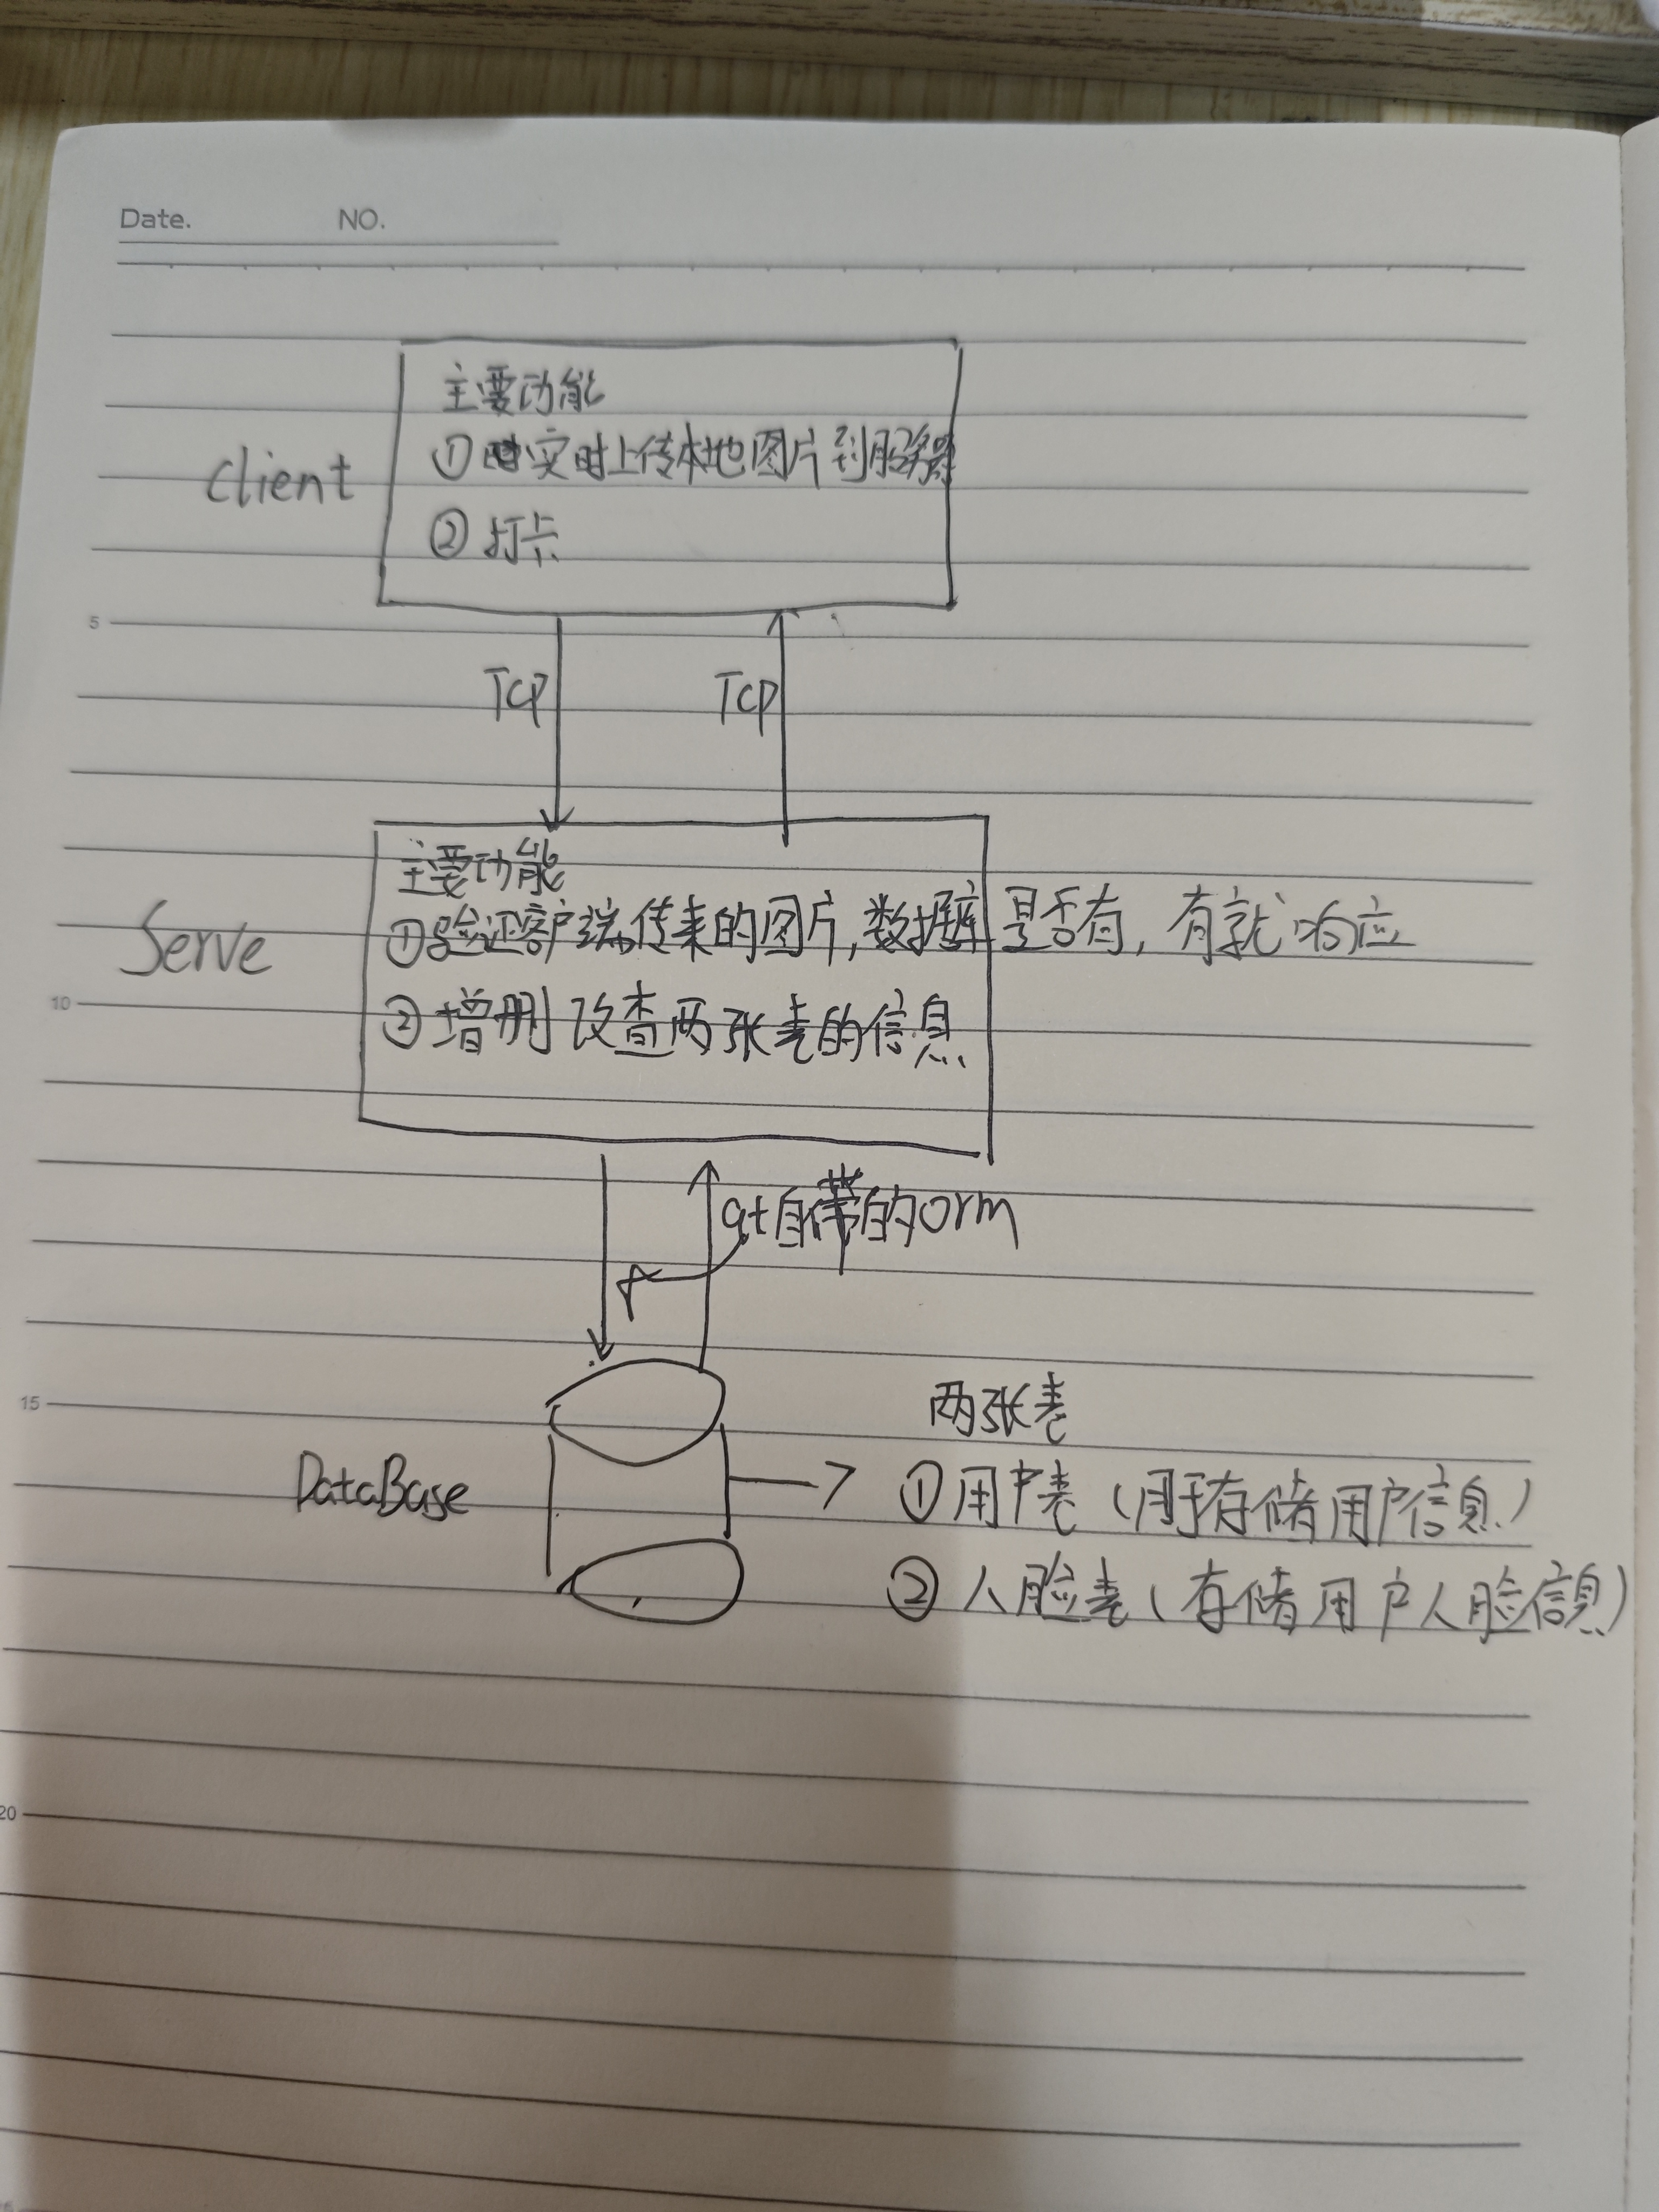 Date. NO.
主要功能
①实时上传本地图片到服务器
client
②打卡
5
TCP TCP
主要功能
①验证客户端传来的图片,数据库是否有,有就响应
Serve
10
②增删改查两张表的信息
qt自带的orm
15
两张表
DataBase
①用户表(用于存储用户信息)
②人脸表(存储用户人脸信息)
20